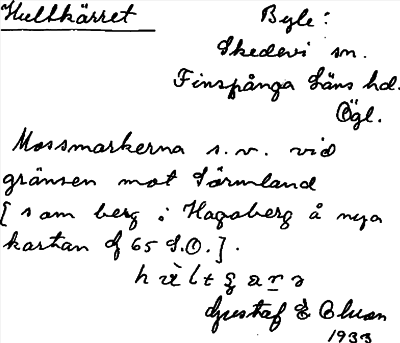 Hultkärret
Byle:
Skedevi sn.
Finspånga Läns hd.
Ögl.
Mossmarkerna s.v. vid
gränsen mot Sörmland
[som berg i Hagaberg å nya
kartan 65 S.O.].
Gustaf
1933